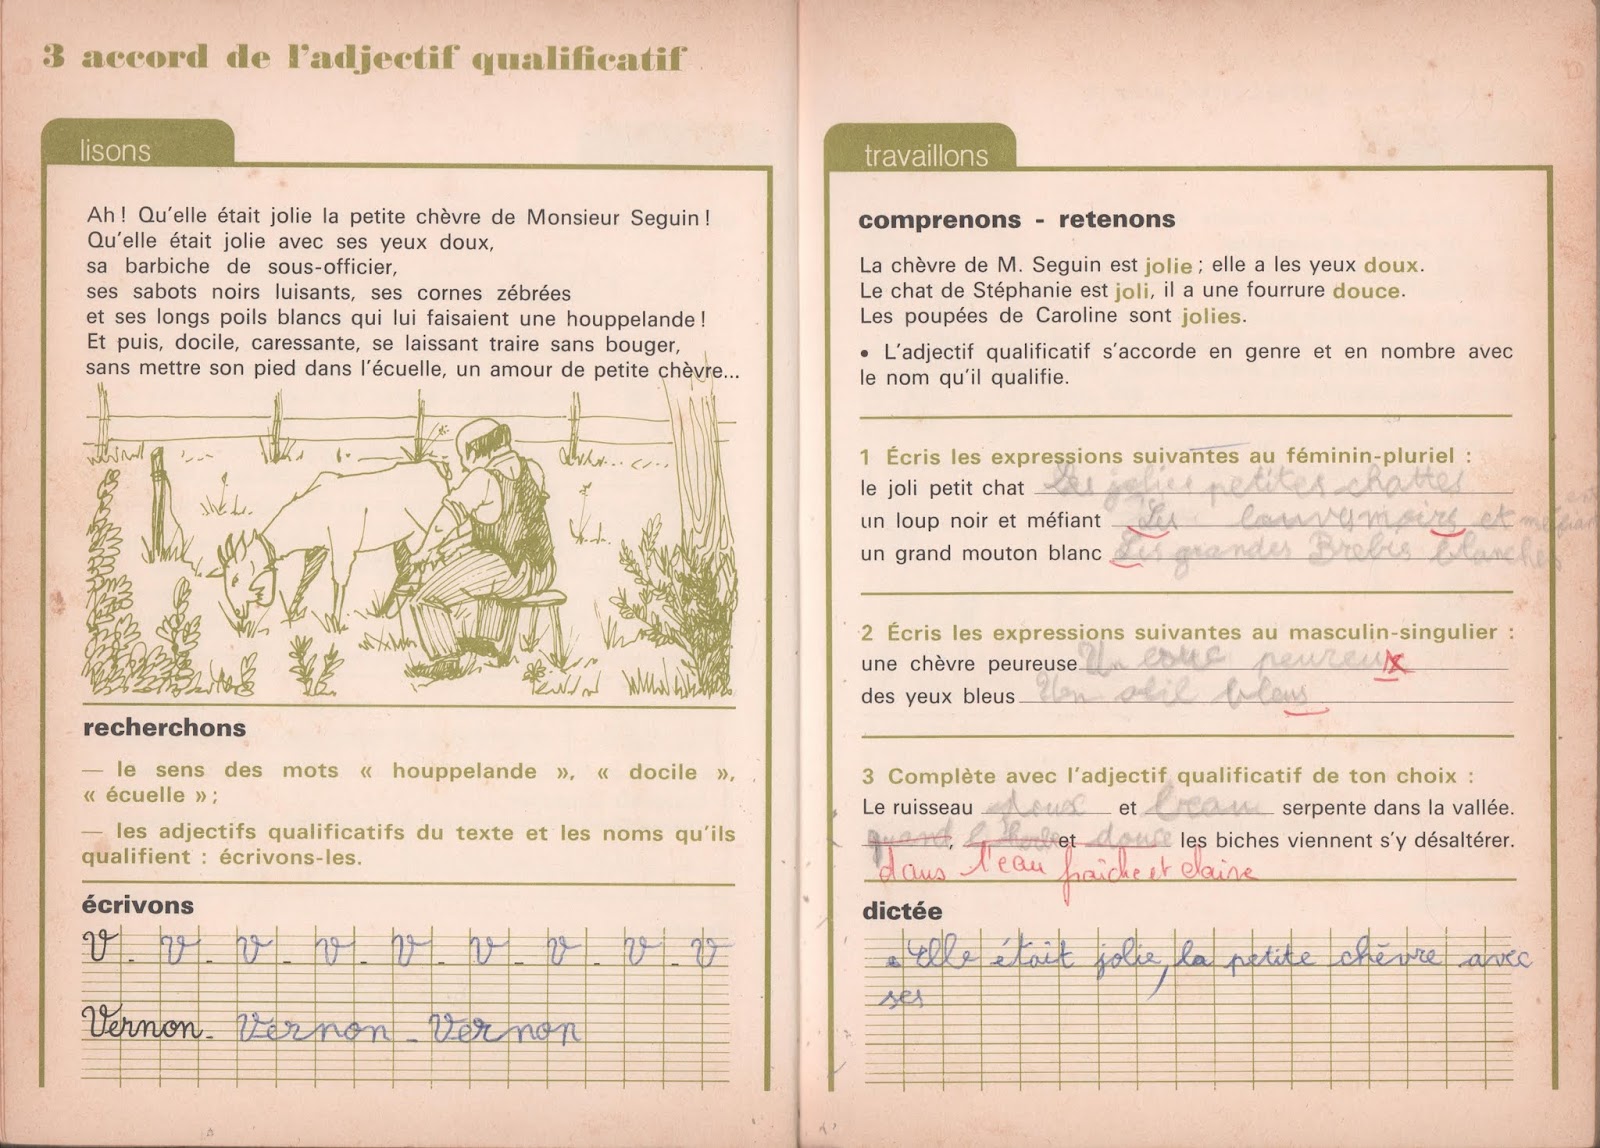 3 accord de l'adjectif qualificatif
lisons
Ah ! Qu'elle était jolie la petite chèvre de Monsieur Seguin !
Qu'elle était jolie avec ses yeux doux,
sa barbiche de sous-officier,
ses sabots noirs luisants, ses cornes zébrées
et ses longs poils blancs qui lui faisaient une houppelande !
Et puis, docile, caressante, se laissant traire sans bouger,
sans mettre son pied dans l'écuelle, un amour de petite chèvre...
recherchons
— le sens des mots « houppelande », « docile »,
« écuelle » ;
— les adjectifs qualificatifs du texte et les noms qu'ils
qualifient : écrivons-les.
écrivons
V - V - V - V - V - V - V - V - V
Vernon - Vernon - Vernon
travaillons
comprenons - retenons
La chèvre de M. Seguin est jolie ; elle a les yeux doux.
Le chat de Stéphanie est joli, il a une fourrure douce.
Les poupées de Caroline sont jolies.
• L'adjectif qualificatif s'accorde en genre et en nombre avec
le nom qu'il qualifie.
1 Écris les expressions suivantes au féminin-pluriel :
le joli petit chat Les jolies petites chattes
un loup noir et méfiant Les et
un grand mouton blanc Les grandes Brebis blanches
2 Écris les expressions suivantes au masculin-singulier :
une chèvre peureuse Un peureux
des yeux bleus Un bleus
3 Complète avec l'adjectif qualificatif de ton choix :
Le ruisseau doux et beau serpente dans la vallée.
, et douce les biches viennent s'y désaltérer.
dans l'eau fraîche et claire
dictée
Elle était jolie, la petite chèvre avec
ses